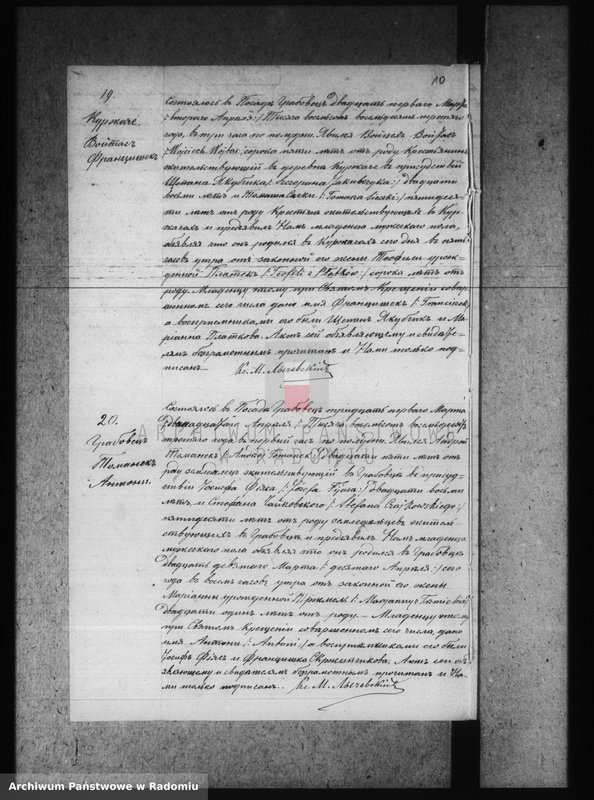 10
19.
Куржаче.
Войтас
Францишек
Состоялось в Посаде Грабовец двадцать перваго Марта
/второго Апреля:/ Тысяча восемьсот восемьдесят третьяго
года, в три часа по полудни. Явился Войцех Войтас
/:Wojciech Wojtas:/ сорока пяти лет от роду Крестьянин
жительствующий в деревне Куржаче в присутствии
Щепана Якубчика /: Szczepana Jakubczyka:/ двадцати
восьми лет и Томаша /: Tomasza :/ пятидеся-
ти лет от роду Крестьян жительствующих в Кур-
жачах и предявил Нам младенца мужескаго пола,
объявляя что он родился в Куржачах сего дня в пять
часов утра от законной его жены Теофили урож-
денной Платек /: Teofili z Płatków:/ сорока лет от
роду. Младенцу этому при Святом Крещении совер-
шенном сего числа дано имя Францишек /: Franciszek,
а восприемниками его были Щепан Якубчик и Ма-
рианна Платкова. Акт сей объявляющему и свидете-
лям безграмотным прочитан и Нами только под-
писан.
Кс. М.
20.
Грабовец
Томанек
Антони.
Состоялось в Посаде Грабовец тридцать перваго Марта
/двенадцатаго Апреля:/ Тысяча восемьсот восемьдесят
третьяго года в первый час по полудни. Явился Андрей
Томанек /: Andrzej Tomanek:/ двадцати пяти лет от
роду земледелец жительствующий в Грабовце в присут-
ствии Иосефа Фіяса /: Józefa :/ двадцати восьми
лет и Стефана Чайковского /: Stefana Czajkowskiego:/
пятидесяти лет от роду земледельцев житель-
ствующих в Грабовце, и предявил Нам младенца
мужескаго пола объявляя что он родился в Грабовце
двадцать девятого Марта /: десятого Апреля:/ сего
года в восемь часов утра от законной его жены
Марианны урожденной /: Maryanny
двадцати один лет от роду. Младенцу этому
при Святом Крещении совершенном сего числа, дано
имя Антони /: Antoni:/ а восприемниками его были
Иосиф Фіяс и Францишка. Акт сей объ-
являющему и свидетелям безграмотным прочитан и На-
ми только подписан. Кс. М.
ARCHIWUM PAŃSTWOWE
W RADOMIU
Archiwum Państwowe w Radomiu